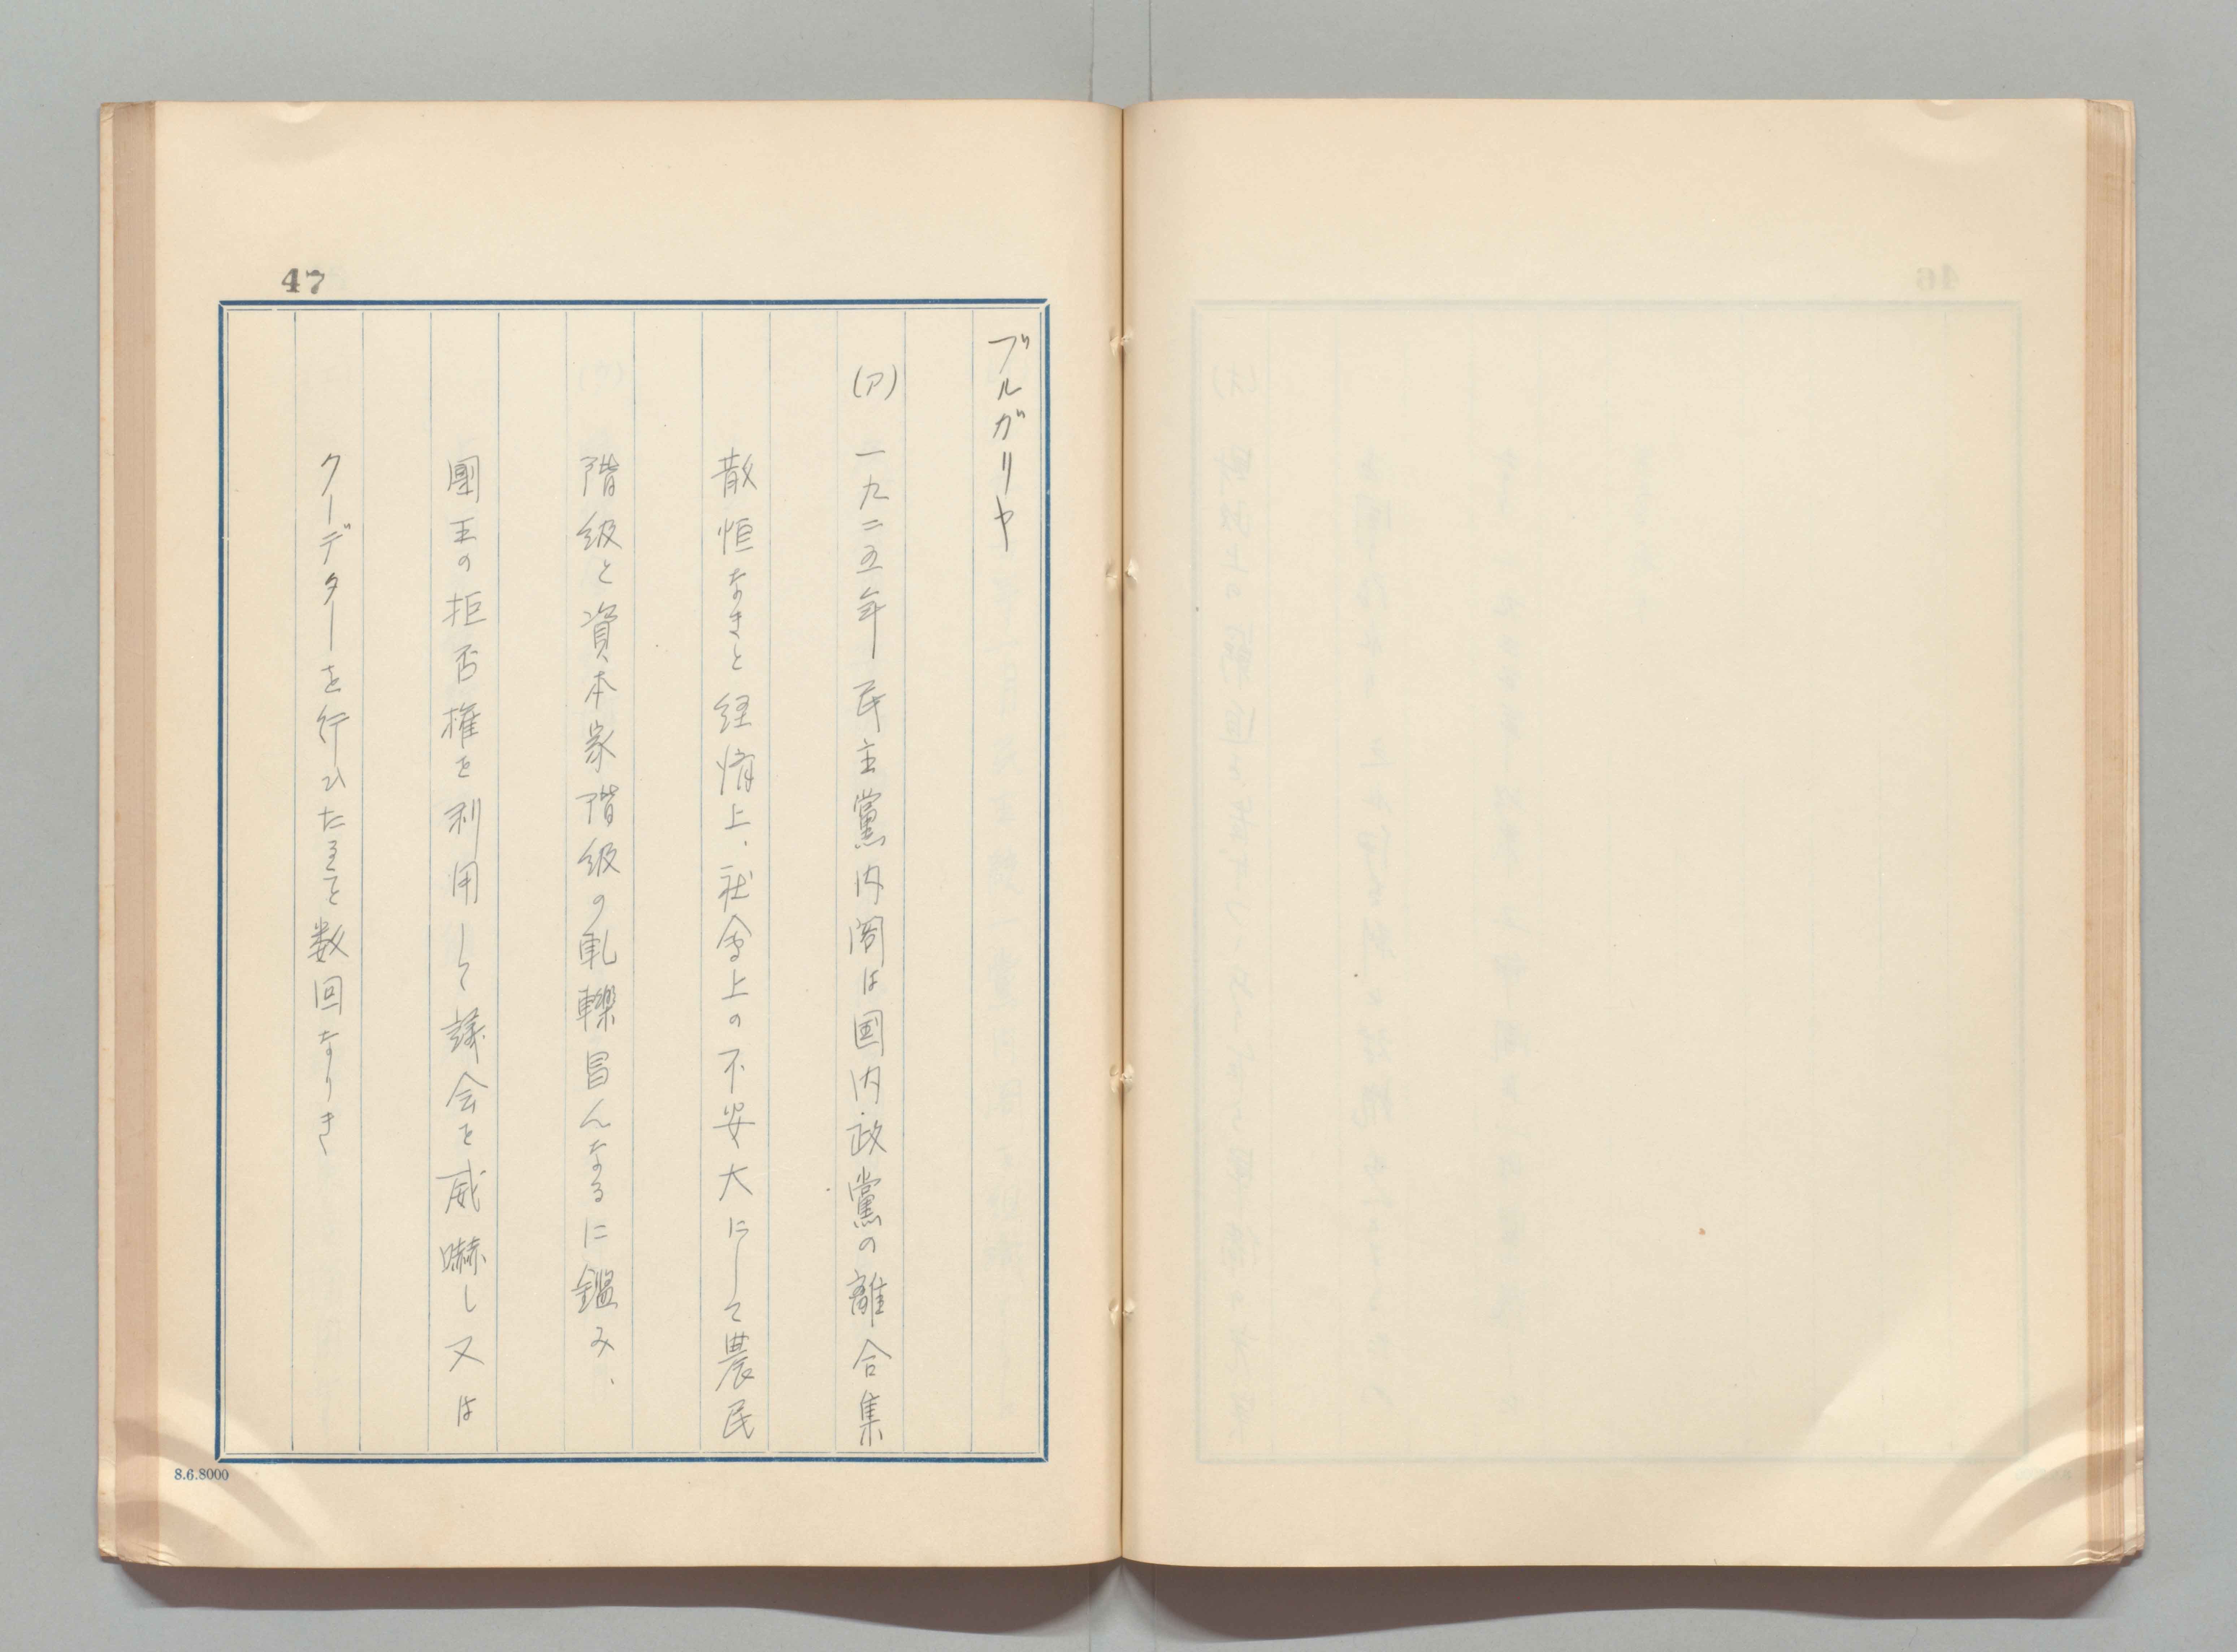 47
ブルガリヤ
(ア) 一九二五年民主黨内閣は国内政黨の離合集
散恒なきと経済上、社会上の不安大にして農民
階級と資本家階級の軋轢冒んなるに鑑み、
國王の拒否権を利用して議会を威嚇し又は
クーデターを行ひたること数回なりき
8.6.8000